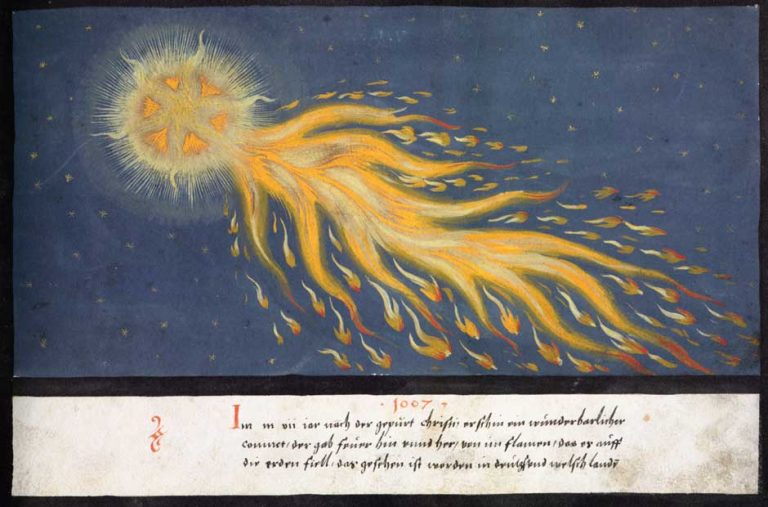 · 1007 ·
Im m vii iar nach der gepurt Christi erschin ein wunderbarlicher
comnet / der gab feuer hin unnd her / von im flamen / das er auff
die erden fiell / das gesehen ist worden in deutsch und welsch landt